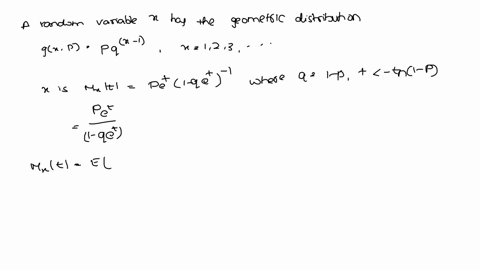 A random variable x has the geometric distribution
g(x, P) = Pq^(x-1), x = 1, 2, 3, ....
x is Mx(t) = Pe^t (1-qe^t)^-1 where q = 1-p, t < -ln(1-P)
= Pe^t / (1-qe^t)
Mx(t) = E[